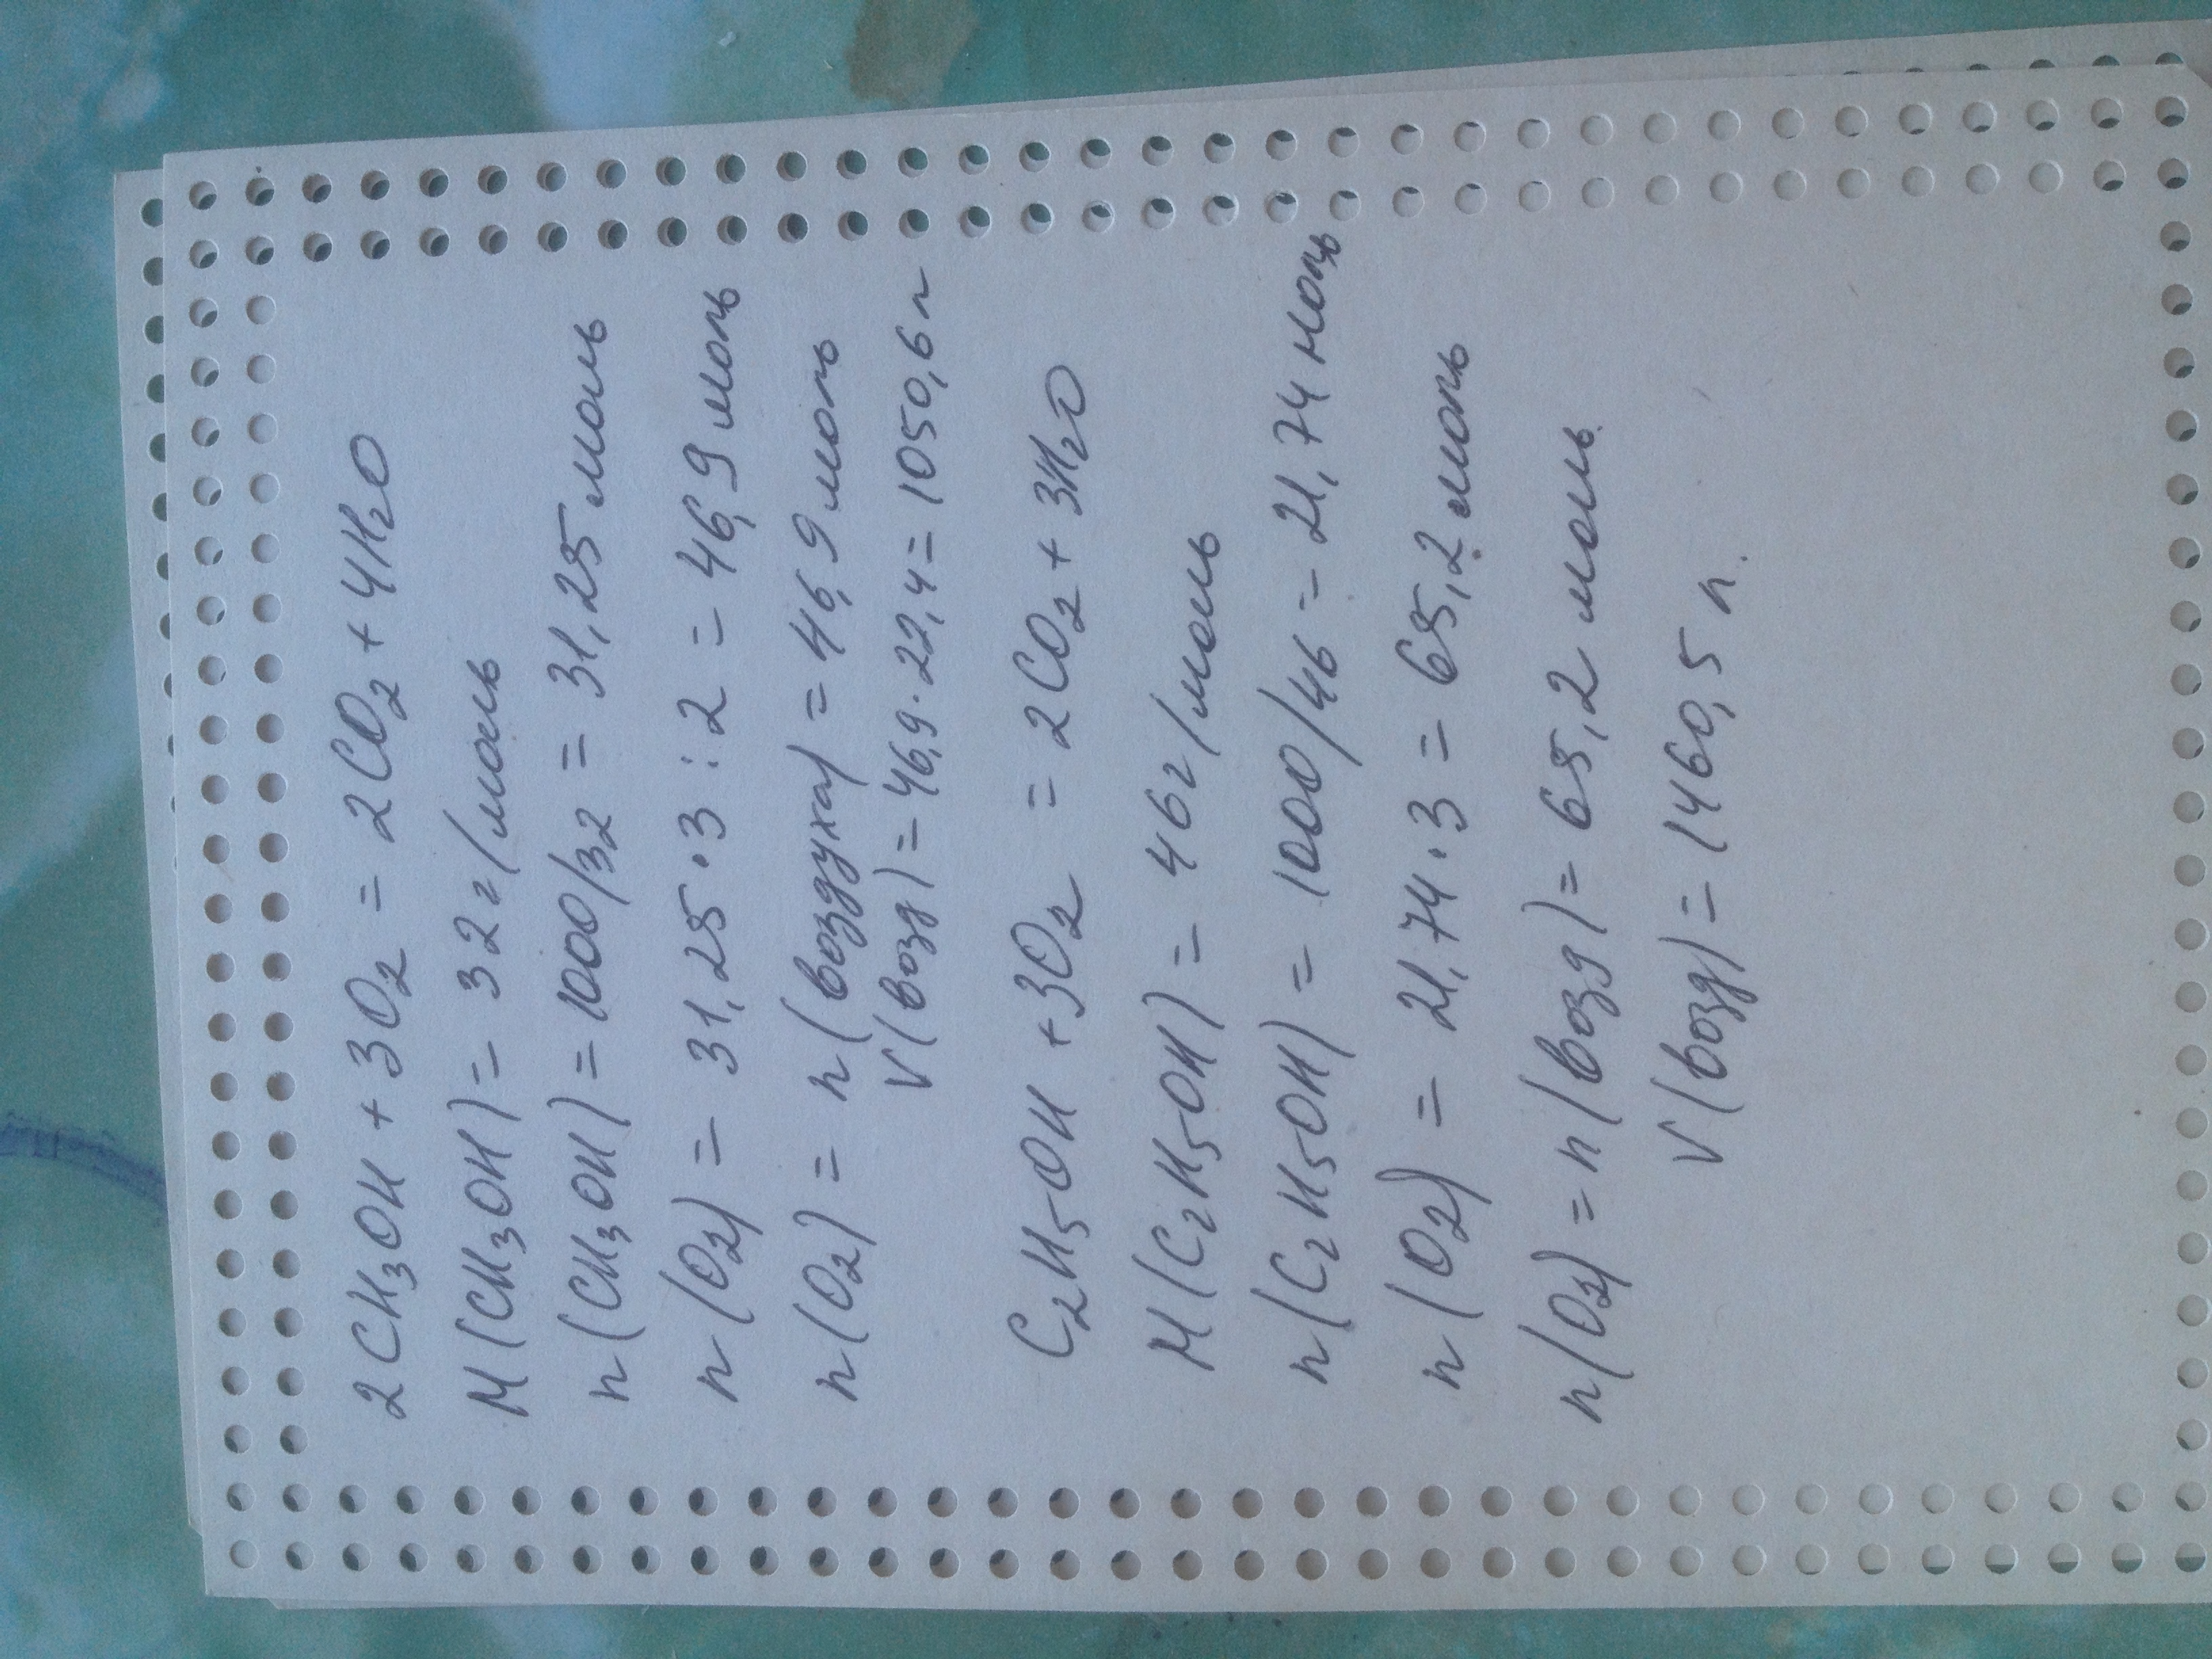 2CH₃OH + 3O₂ = 2CO₂ + 4H₂O
M(CH₃OH) = 32г/моль
n(CH₃OH) = 1000/32 = 31,25 моль
n(O₂) = 31,25·3:2 = 46,9 моль
n(O₂) = n(воздуха) = 46,9 моль
V(возд) = 46,9·22,4 = 1050,6 л
C₂H₅OH + 3O₂ = 2CO₂ + 3H₂O
M(C₂H₅OH) = 46г/моль
n(C₂H₅OH) = 1000/46 = 21,74 моль
n(O₂) = 21,74·3 = 65,2 моль
n(O₂) = n(возд) = 65,2 моль
V(возд) = 1460,5 л.